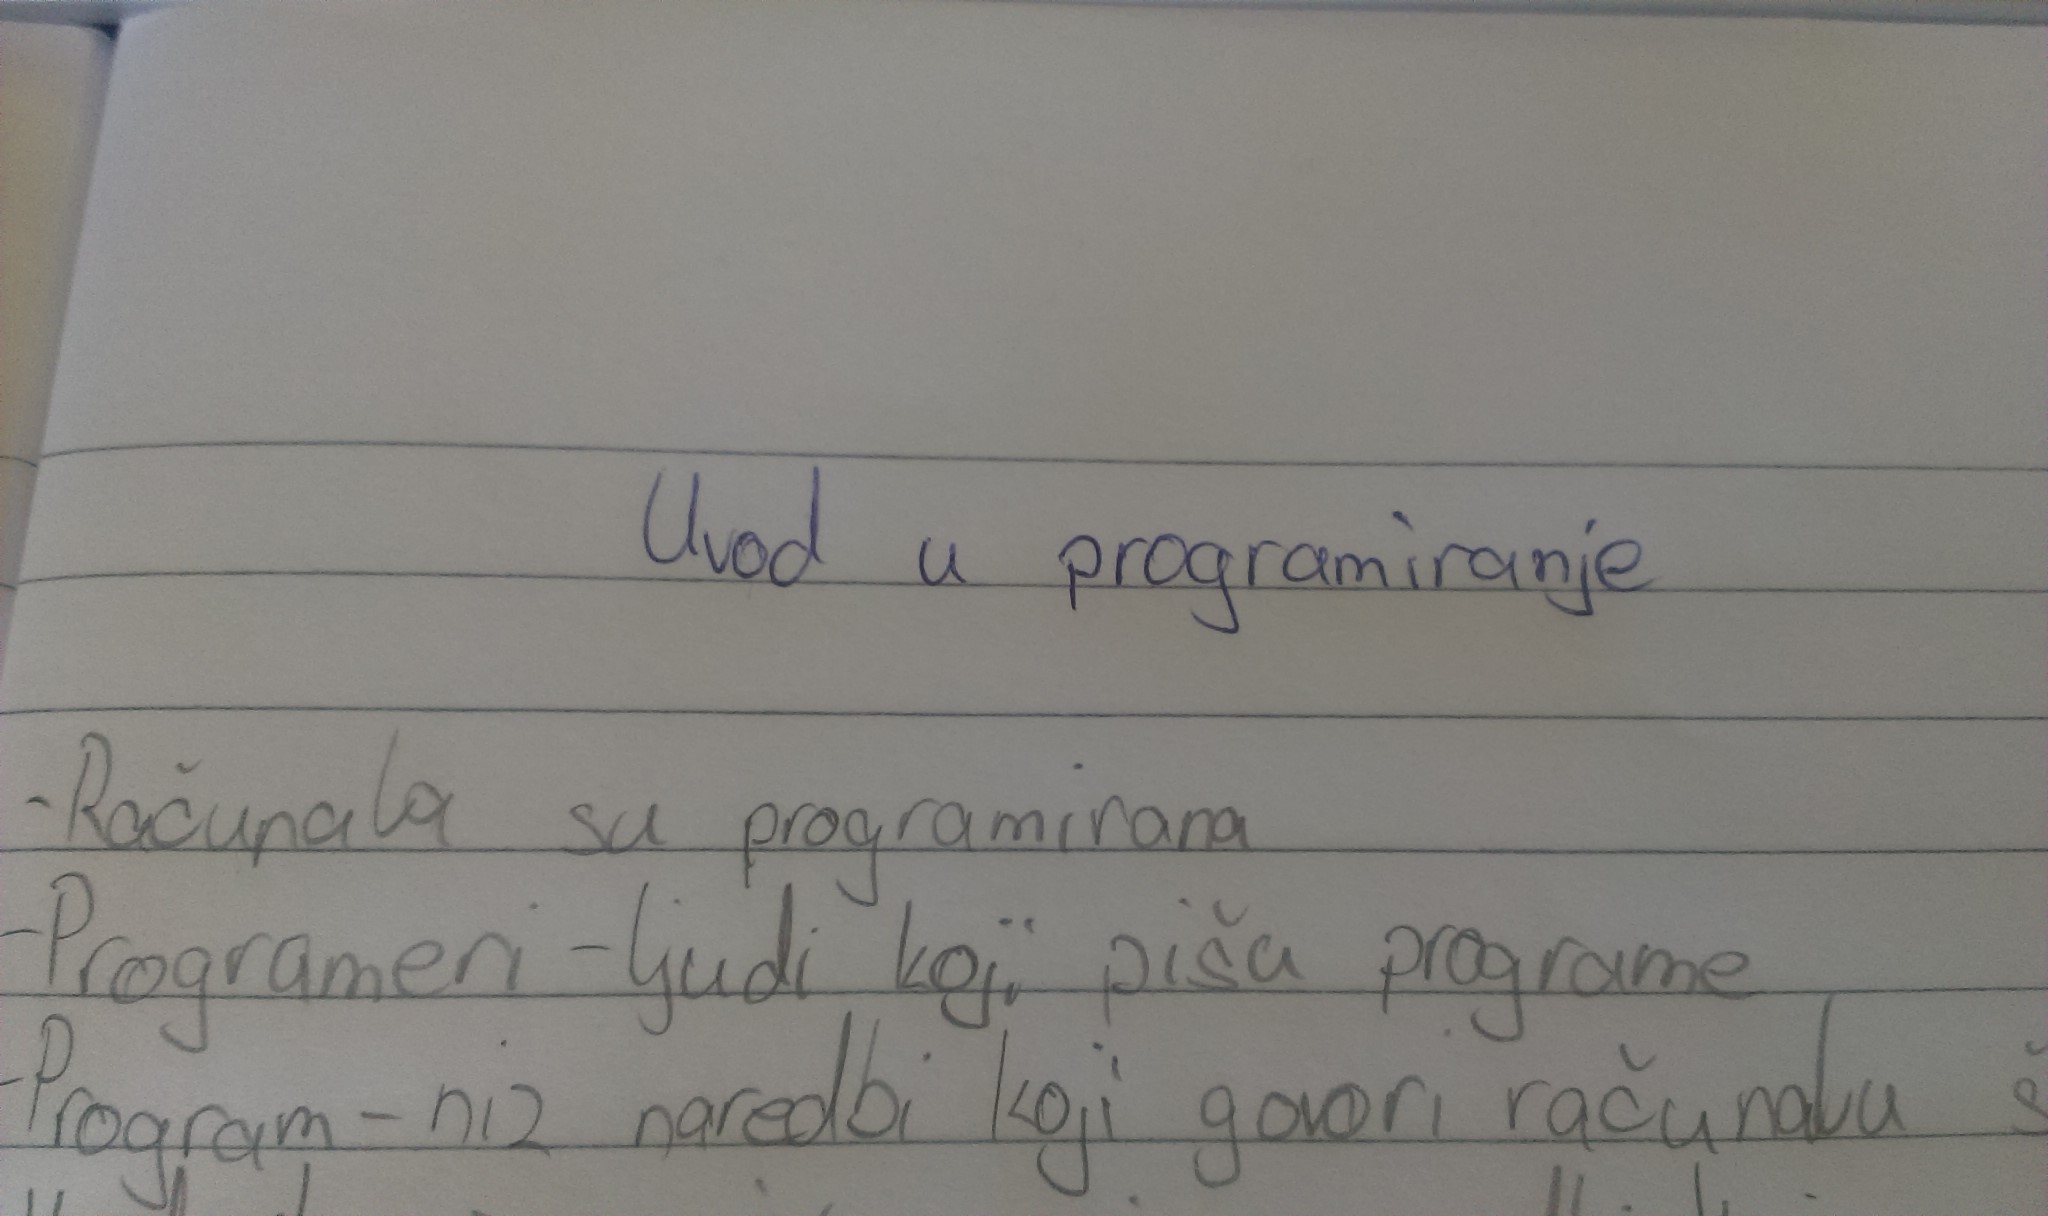 Uvod u programiranje
-Računala su programirana
-Programeri -ljudi koji pišu programe
-Program - niz naredbi koji govori računalu